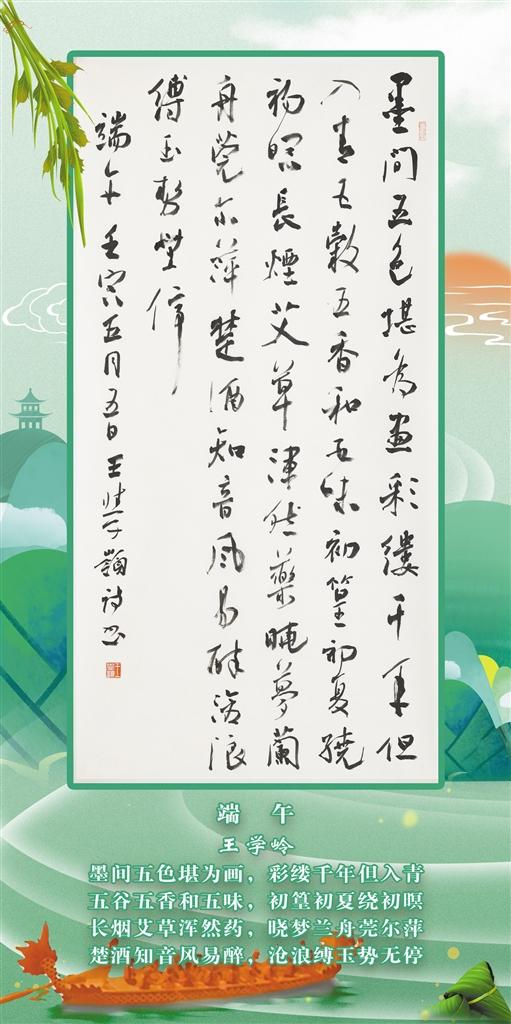 墨間五色堪為畫彩縷千年但
入青五穀五香和五味初篁初夏繞
初暝長煙艾草渾然藥曉夢蘭
舟莞尔萍楚酒知音風易醉滄浪
縛玉勢無停
端午 壬寅五月五日王學嶺詩書
端 午
王学岭
墨间五色堪为画，彩缕千年但入青
五谷五香和五味，初篁初夏绕初暝
长烟艾草浑然药，晓梦兰舟莞尔萍
楚酒知音风易醉，沧浪缚玉势无停